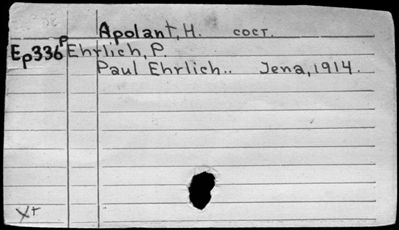 Apolant, H. сост.
Ep336p Ehrlich, P.
Paul Ehrlich.. Jena, 1914.
X+